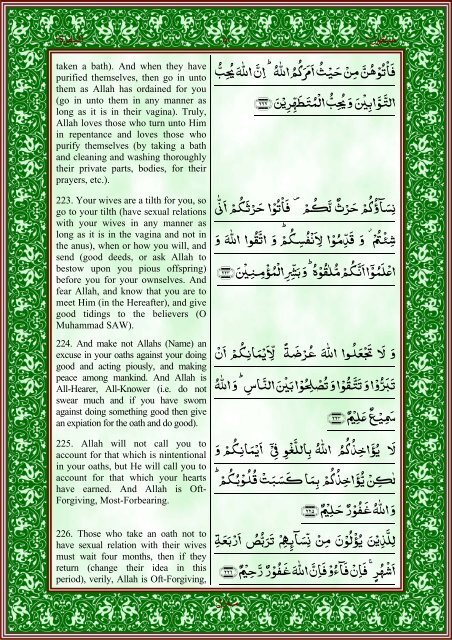 taken a bath). And when they have
purified themselves, then go in unto
them as Allah has ordained for you
(go in unto them in any manner as
long as it is in their vagina). Truly,
Allah loves those who turn unto Him
in repentance and loves those who
purify themselves (by taking a bath
and cleaning and washing thoroughly
their private parts, bodies, for their
prayers, etc.).
223. Your wives are a tilth for you, so
go to your tilth (have sexual relations
with your wives in any manner as
long as it is in the vagina and not in
the anus), when or how you will, and
send (good deeds, or ask Allah to
bestow upon you pious offspring)
before you for your ownselves. And
fear Allah, and know that you are to
meet Him (in the Hereafter), and give
good tidings to the believers (O
Muhammad SAW).
224. And make not Allahs (Name) an
excuse in your oaths against your doing
good and acting piously, and making
peace among mankind. And Allah is
All-Hearer, All-Knower (i.e. do not
swear much and if you have sworn
against doing something good then give
an expiation for the oath and do good).
225. Allah will not call you to
account for that which is nintentional
in your oaths, but He will call you to
account for that which your hearts
have earned. And Allah is Oft-
Forgiving, Most-Forbearing.
226. Those who take an oath not to
have sexual relation with their wives
must wait four months, then if they
return (change their idea in this
period), verily, Allah is Oft-Forgiving,
فَاْتُوْهُنَّ مِنْ حَيْثُ اَمَرَكُمُ اللّٰهُ ؕ اِنَّ اللّٰهَ يُحِبُّ
التَّوَّابِيْنَ وَ يُحِبُّ الْمُتَطَهِّرِيْنَ ﴿۲۲۲﴾
نِسَآؤُكُمْ حَرْثٌ لَّكُمْ ۪ فَاْتُوْا حَرْثَكُمْ اَنّٰى
شِئْتُمْ ؗ وَ قَدِّمُوْا لِاَنْفُسِكُمْ ؕ وَ اتَّقُوا اللّٰهَ وَ
اعْلَمُوْۤا اَنَّكُمْ مُّلٰقُوْهُ ؕ وَ بَشِّرِ الْمُؤْمِنِيْنَ ﴿۲۲۳﴾
وَ لَا تَجْعَلُوا اللّٰهَ عُرْضَةً لِّاَيْمَانِكُمْ اَنْ
تَبَرُّوْا وَ تَتَّقُوْا وَ تُصْلِحُوْا بَيْنَ النَّاسِ ؕ وَ اللّٰهُ
سَمِيْعٌ عَلِيْمٌ ﴿۲۲۴﴾
لَا يُؤَاخِذُكُمُ اللّٰهُ بِاللَّغْوِ فِيْۤ اَيْمَانِكُمْ وَ
لٰكِنْ يُّؤَاخِذُكُمْ بِمَا كَسَبَتْ قُلُوْبُكُمْ ؕ
وَ اللّٰهُ غَفُوْرٌ حَلِيْمٌ ﴿۲۲۵﴾
لِلَّذِيْنَ يُؤْلُوْنَ مِنْ نِّسَآئِهِمْ تَرَبُّصُ اَرْبَعَةِ
اَشْهُرٍ ۚ فَاِنْ فَآءُوْ فَاِنَّ اللّٰهَ غَفُوْرٌ رَّحِيْمٌ ﴿۲۲۶﴾